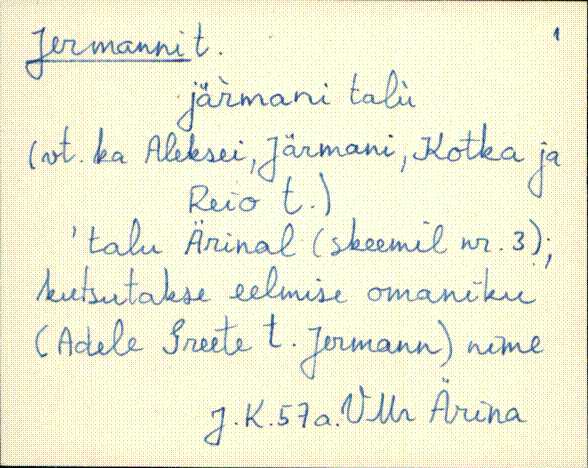 Jermanni t. 1
jä̀rmani talù
(vt. ka Aleksei, Järmani, Kotka ja
Reio t.)
'talu Ärinal (skeemil nr. 3);
kutsutakse eelmise omaniku
(Adele Greete t. Jermann) nime
J.K. 57a. VMr Ärina